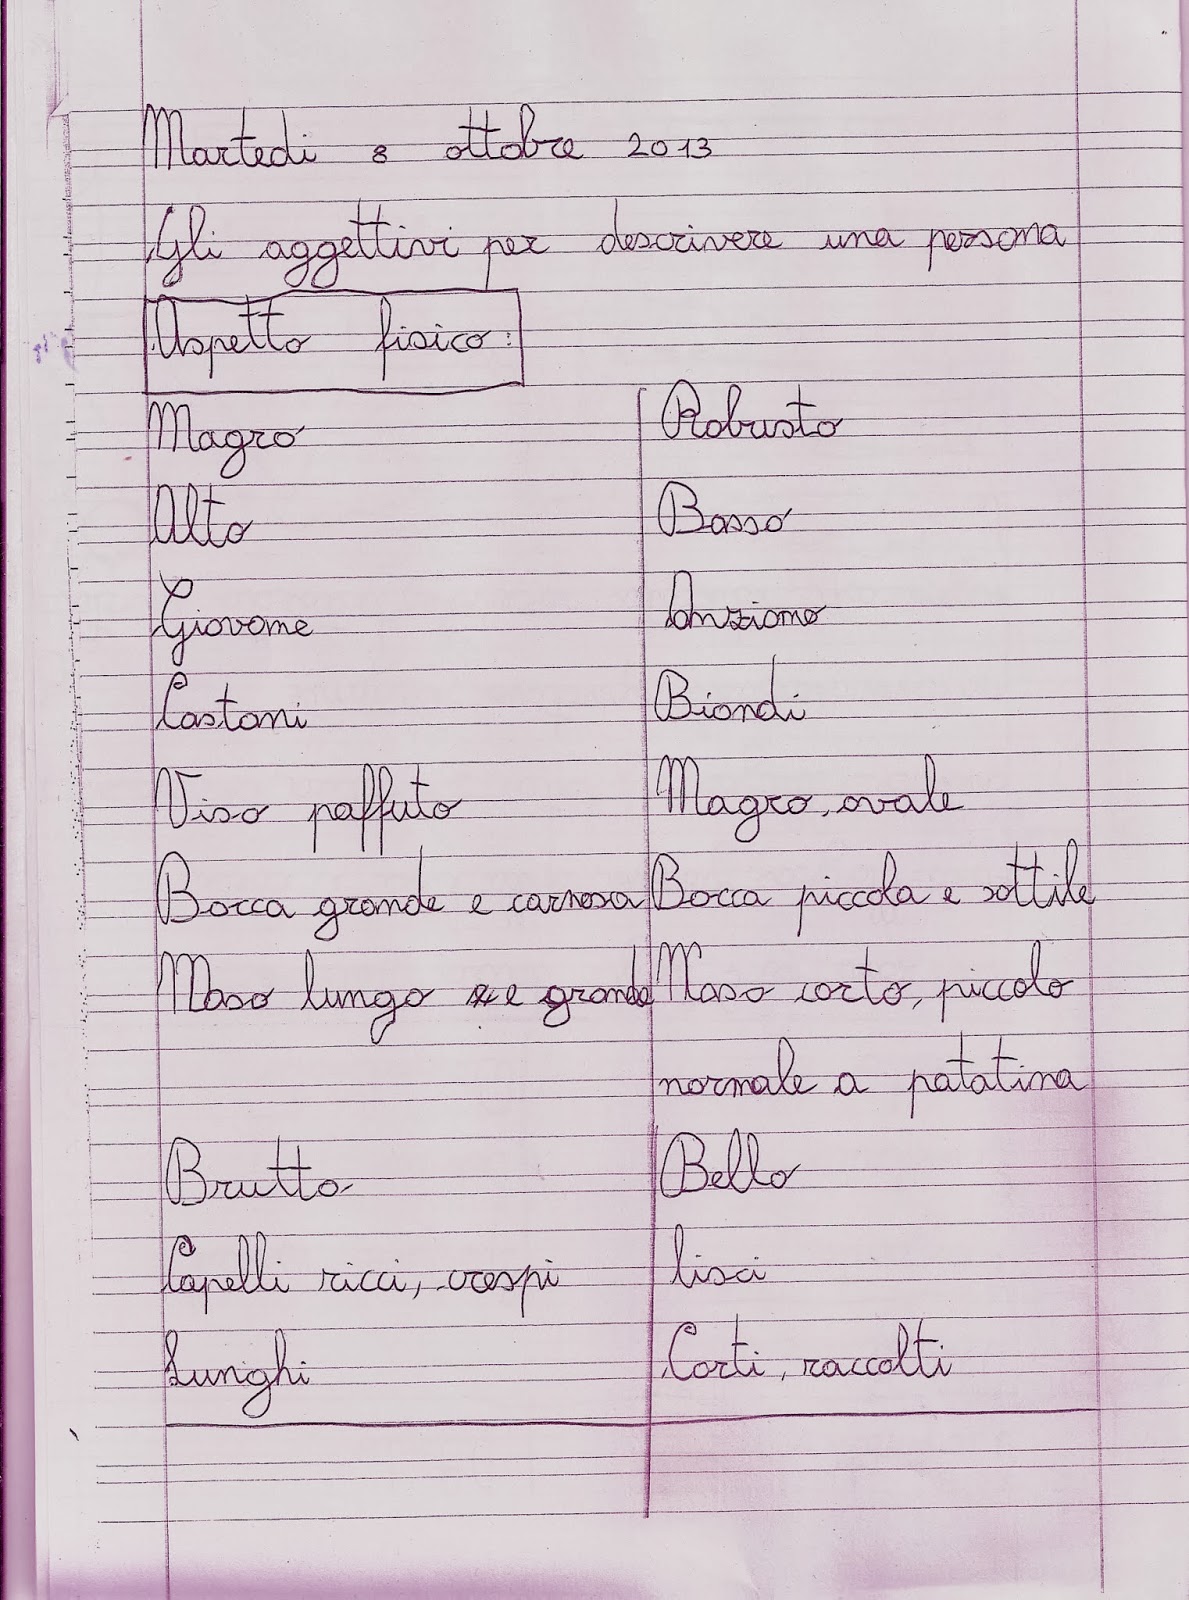 Martedi 8 ottobre 2013
Gli aggettivi per descrivere una persona
Aspetto fisico:
Magro Robusto
Alto Basso
Giovane Anziano
Castani Biondi
Viso paffuto Magro, ovale
Bocca grande e carnosa Bocca piccola e sottile
Naso lungo e grande Naso corto, piccolo
normale a patatina
Brutto Bello
Capelli ricci, crespi lisci
Lunghi Corti, raccolti